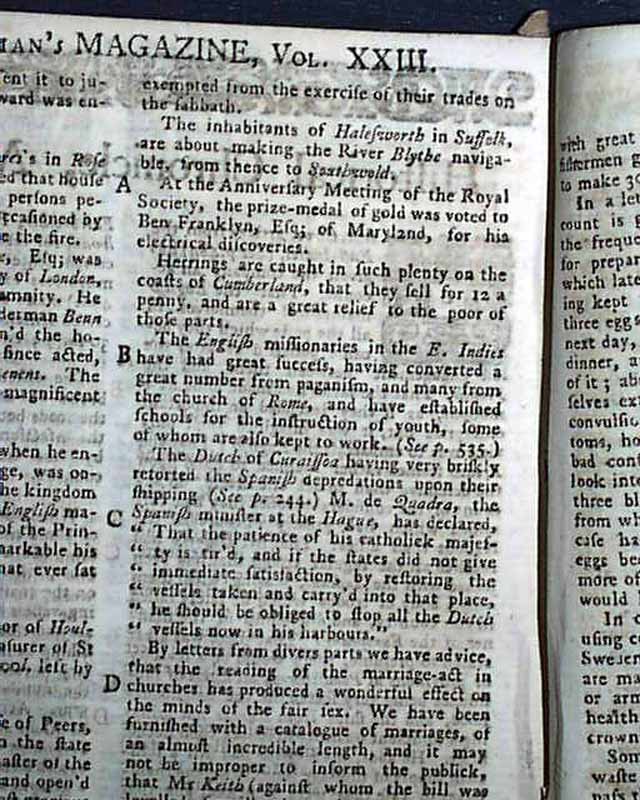 MAN's MAGAZINE, VOL. XXIII.
ſent it to ju-
ward was en-
's in Roſe
ed that houſe
perſons pe-
ccaſioned by
e the fire.
Eſq; was
y of London,
amnity. He
derman Benn
n'd the ho-
ſince acted,
The
magnificent
when he en-
ge, was on-
he kingdom
Engliſh ma-
of the Prin-
markable his
hat ever ſat
or of Houſ-
ſurer of St
left by
ſe of Peers,
n the ſtate
aſter of the
and open'd
exempted from the exerciſe of their trades on
the ſabbath.
The inhabitants of Haleſworth in Suffolk,
are about making the River Blythe naviga-
ble, from thence to Southwold.
A At the Anniverſary Meeting of the Royal
Society, the prize-medal of gold was voted to
Ben Franklyn, Eſq; of Maryland, for his
electrical diſcoveries.
Herrings are caught in ſuch plenty on the
coaſts of Cumberland, that they ſell for 12 a
penny, and are a great relief to the poor of
thoſe parts.
The Engliſh miſſionaries in the E. Indies
B have had great ſucceſs, having converted a
great number from paganiſm, and many from
the church of Rome, and have eſtabliſhed
ſchools for the inſtruction of youth, ſome
of whom are alſo kept to work. (See p. 535.)
The Dutch of Curaiſſoa having very briſkly
retorted the Spaniſh depredations upon their
ſhipping (See p. 244.) M. de Quadra, the
C Spaniſh miniſter at the Hague, has declared,
“ That the patience of his catholick majeſ-
“ ty is tir'd, and if the ſtates did not give
“ immediate ſatisfaction, by reſtoring the
“ veſſels taken and carry'd into that place,
“ he ſhould be obliged to ſtop all the Dutch
“ veſſels now in his harbours.”
By letters from divers parts we have advice,
that the reading of the marriage-act in
D churches has produced a wonderful effect on
the minds of the fair ſex. We have been
furniſhed with a catalogue of marriages, of
an almoſt incredible length, and it may
not be improper to inform the publick,
that Mr Keith (againſt whom the bill was
with great
fiſhermen g
to make 30
In a let
count is g
the freque
for prepar
which late
ing kept
three eggs
next day,
dinner, a
of it; ab
ſelves ext
convulſio
toms, ho
bad conſ
look into
three bl
from wh
caſe ha
eggs be
more of
would
In
uſing c
Sweden
are ma
or arm
health
crown
Som
waſte